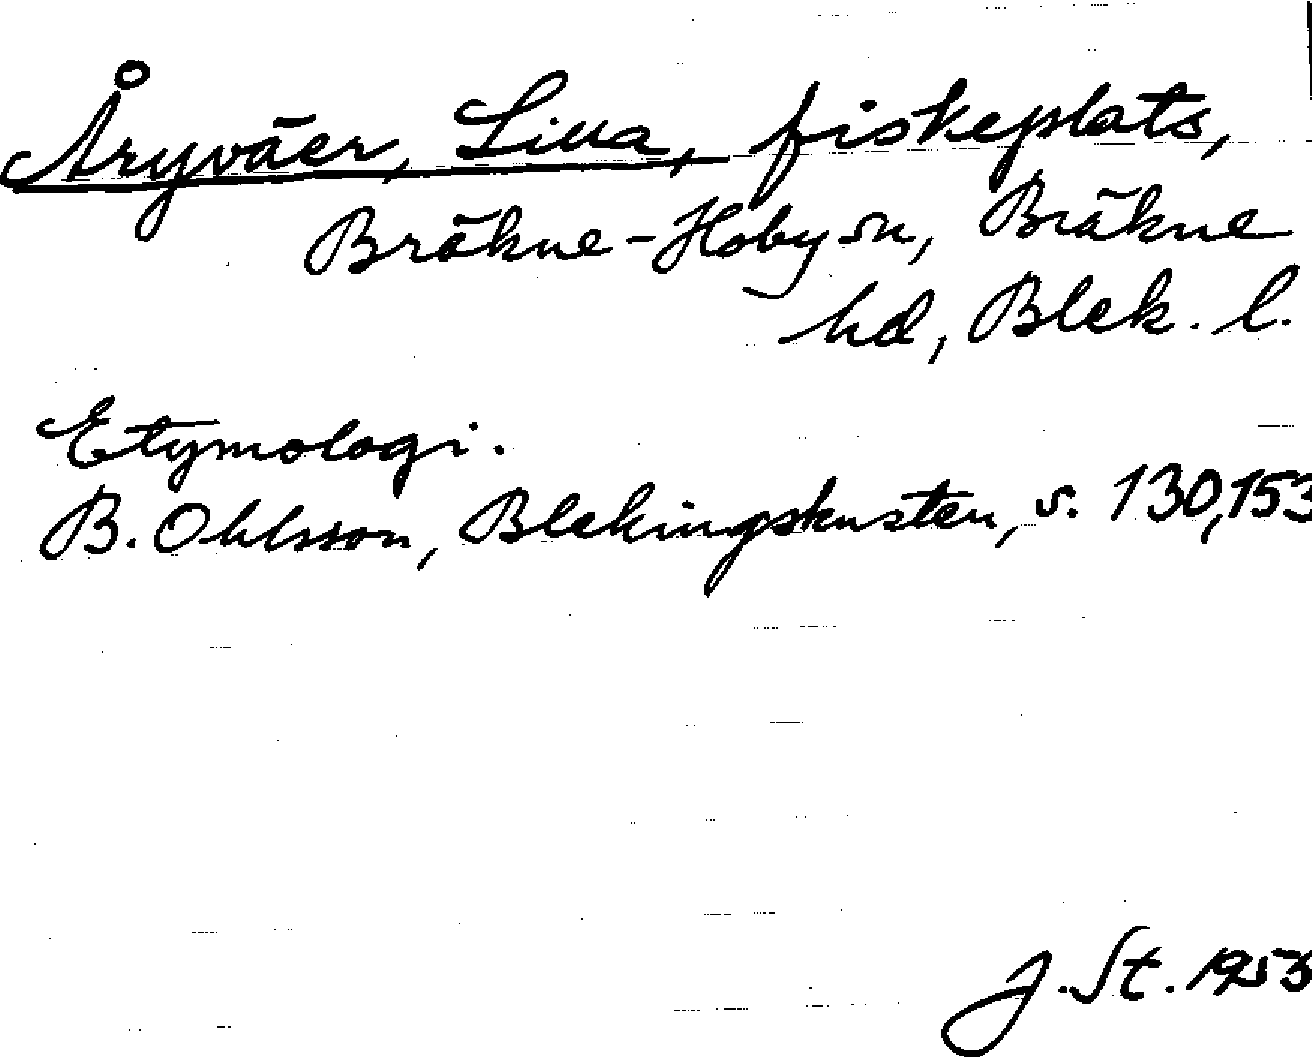 Åryväer, Lilla, fiskeplats,
Bräkne-Hoby sn, Bräkne
hd, Blek. l.
Etymologi.
B. Ohlsson, Blekingskusten, s. 130, 153
J. St. 1953